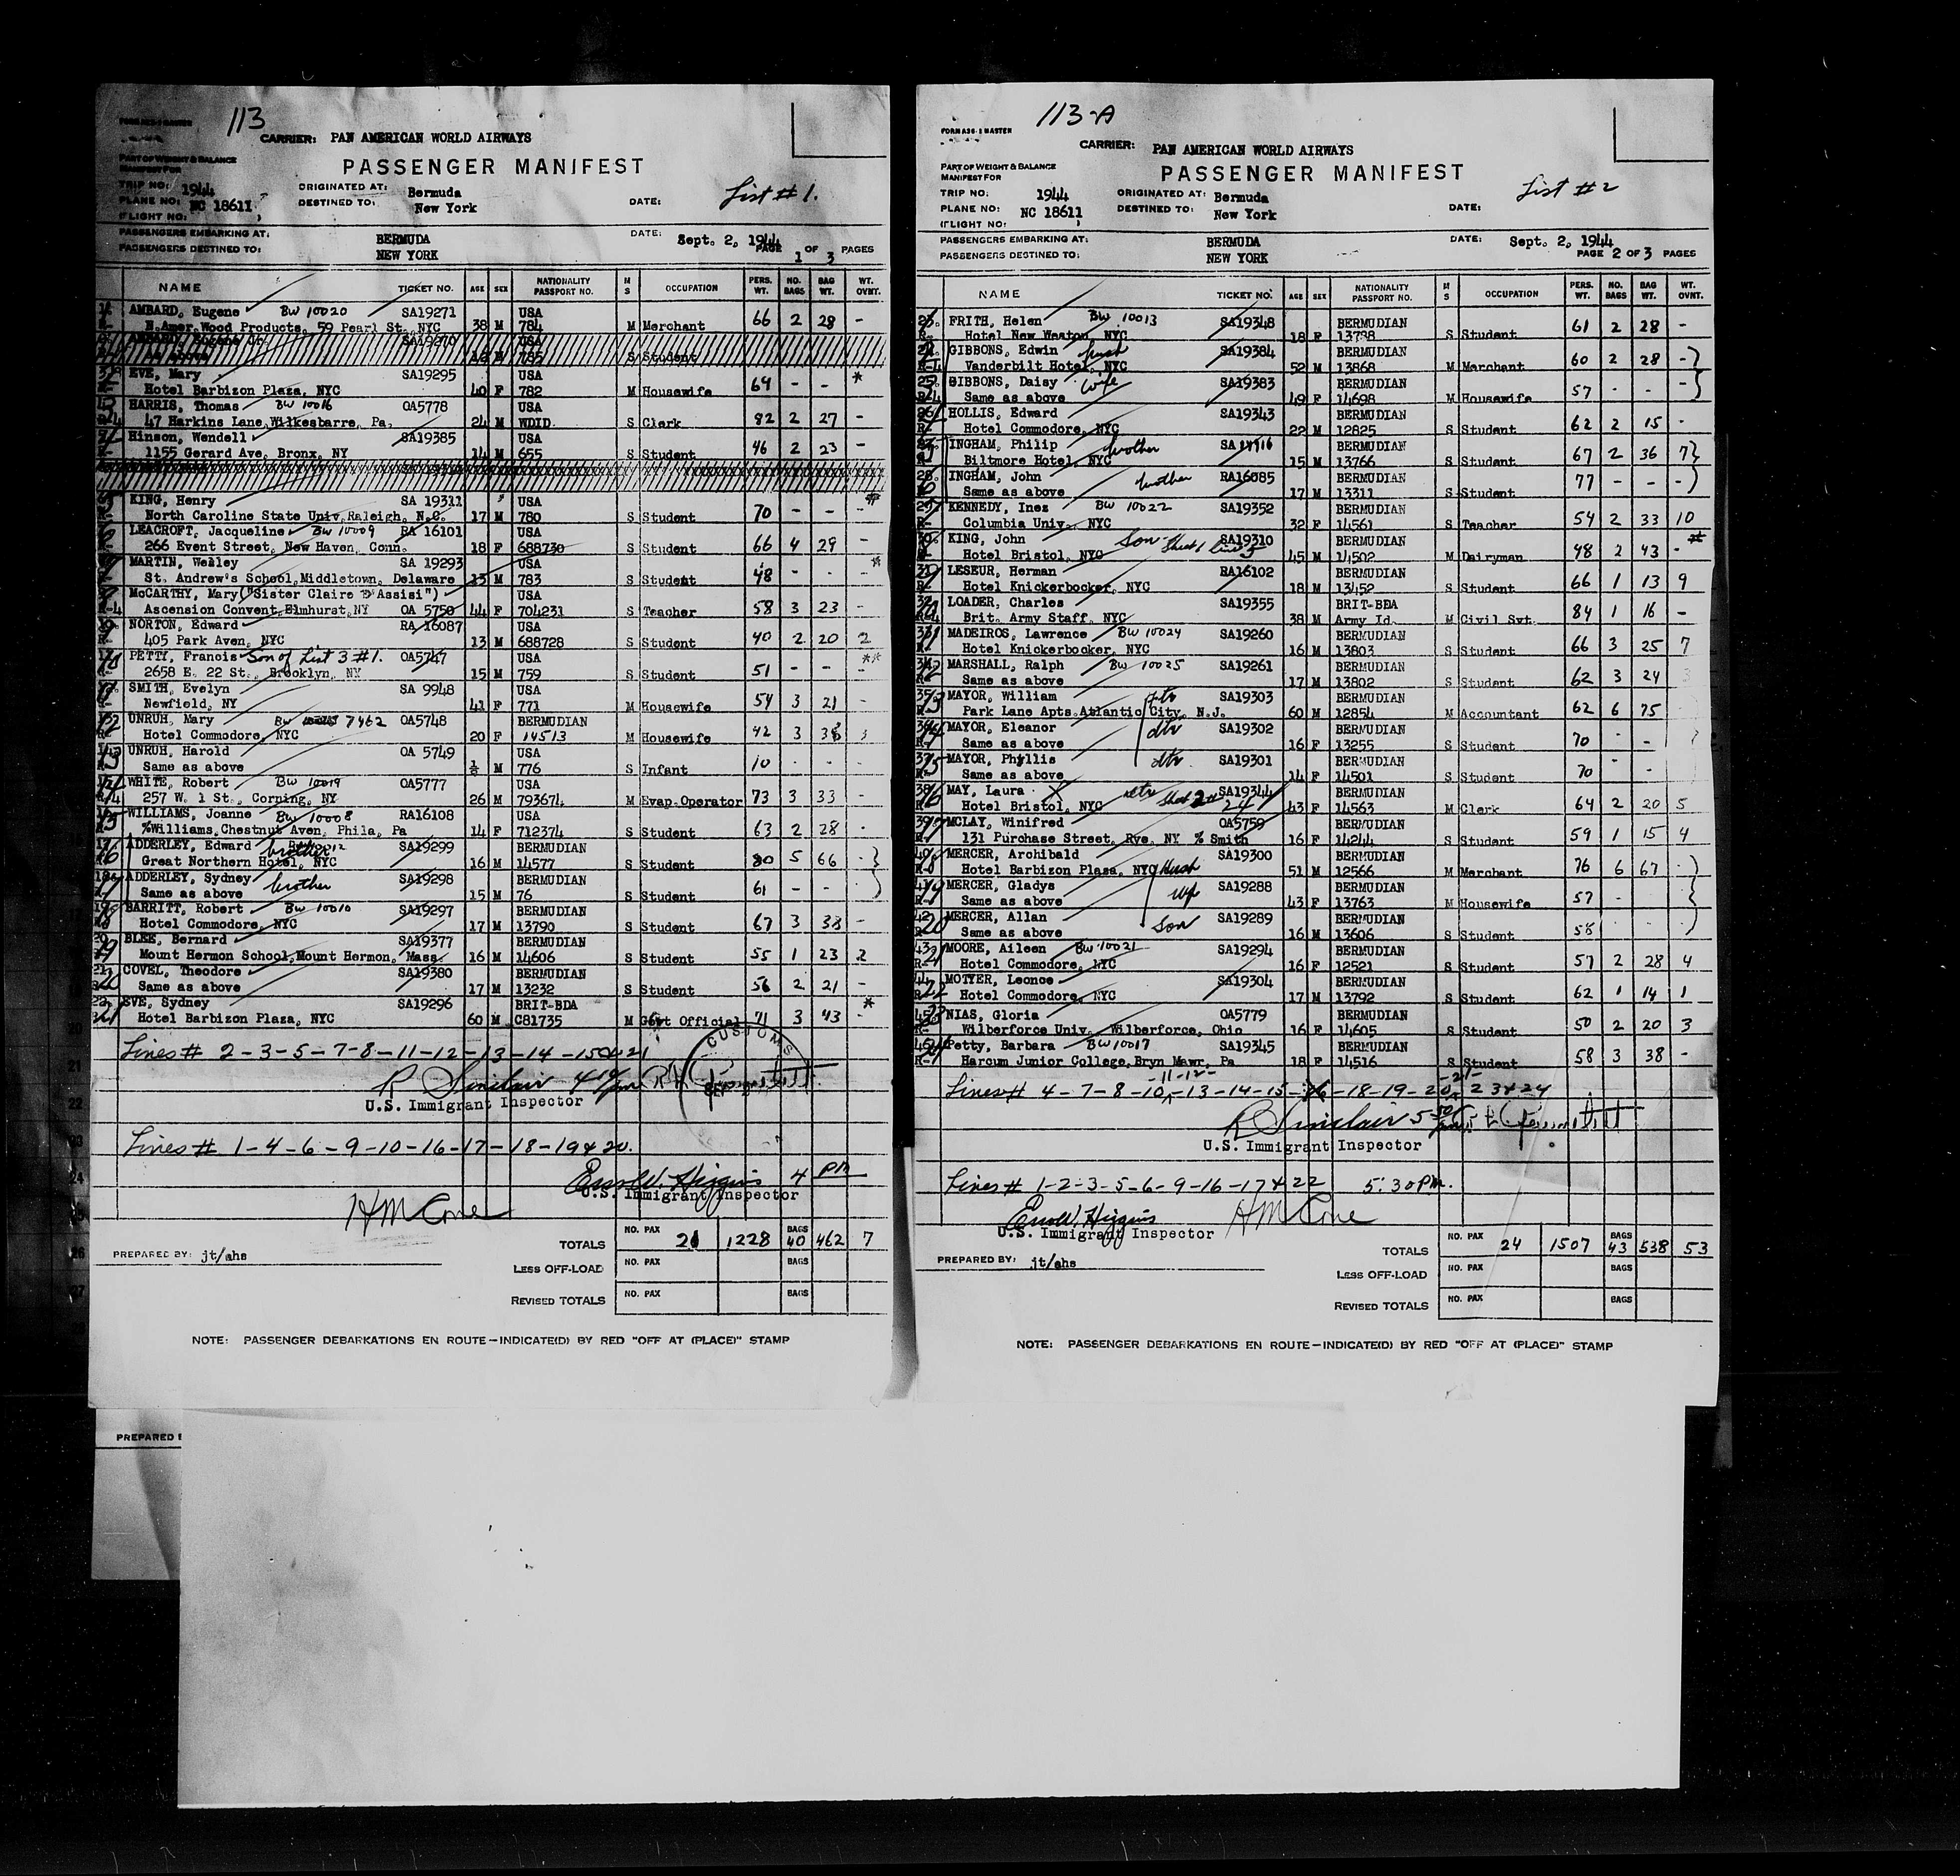 113
FORM A36-1 MASTER
CARRIER: PAN AMERICAN WORLD AIRWAYS
PASSENGER MANIFEST
PART OF WEIGHT & BALANCE
MANIFEST FOR
TRIP NO: 1944 ORIGINATED AT: Bermuda
PLANE NO: NC 18611 DESTINED TO: New York DATE: List # 1.
(FLIGHT NO: )
PASSENGERS EMBARKING AT: BERMUDA DATE: Sept. 2, 1944
PASSENGERS DESTINED TO: NEW YORK PAGE 1 OF 3 PAGES
NAME TICKET NO. AGE SEX NATIONALITY PASSPORT NO. M S OCCUPATION PERS. WT. NO. BAGS BAG WT. WT. OVNT.
AMBARD, Eugene BW 10020 SA19271 USA
N.Amer.Wood Products, 59 Pearl St. NYC 38 M 784 M Merchant 66 2 28 -
AMBARD, Eugene Jr. SA19270 USA
as above 785 S Student
EVE, Mary SA19295 USA *
Hotel Barbizon Plaza, NYC 40 F 782 M Housewife 64 - -
HARRIS, Thomas BW 10016 OA5778 USA
47 Harkins Lane, Wilkesbarre, Pa. 24 M WDID S Clerk 82 2 27 -
Hinson, Wendell SA19385 USA
1155 Gerard Ave, Bronx, NY 14 M 655 S Student 46 2 23 -
KING, Henry SA 19311 USA *
North Carolina State Univ, Raleigh, N.C. 17 M 780 S Student 70 - - -
LEACROFT, Jacqueline BW 10009 RA 16101 USA
266 Event Street, New Haven, Conn. 18 F 688730 S Student 66 4 29 -
MARTIN, Wesley SA 19293 USA *
St. Andrew's School, Middletown, Delaware 15 M 783 S Student 48 - - -
McCARTHY, Mary("Sister Claire D'Assisi") USA
Ascension Convent, Elmhurst, NY OA 5750 44 F 704231 S Teacher 58 3 23 -
NORTON, Edward RA 16087 USA
405 Park Aven, NYC 13 M 688728 S Student 40 2 20 2
PETTY, Francis Son of List 3 #1. OA5747 USA **
2658 E. 22 St., Brooklyn, NY 15 M 759 S Student 51 - - -
SMITH, Evelyn SA 9948 USA
Newfield, NY 41 F 771 M Housewife 54 3 21 -
UNRUH, Mary BW 7462 OA5748 BERMUDIAN
Hotel Commodore, NYC 20 F 14513 M Housewife 42 3 38 3
UNRUH, Harold OA 5749 USA
Same as above M 776 S Infant 10 - - -
WHITE, Robert BW 10019 OA5777 USA
257 W. 1 St., Corning, NY 26 M 793674 M Evap.Operator 73 3 33 -
WILLIAMS, Joanne BW 10008 RA16108 USA
%Williams, Chestnut Aven, Phila, Pa 14 F 712374 S Student 63 2 28 -
ADDERLEY, Edward brother SA19299 BERMUDIAN
Great Northern Hotel, NYC 16 M 14577 S Student 80 5 66 - }
ADDERLEY, Sydney brother SA19298 BERMUDIAN
Same as above 15 M 76 S Student 61 - - }
BARRITT, Robert BW 10010 SA19297 BERMUDIAN
Hotel Commodore, NYC 17 M 13790 S Student 67 3 38 -
BLEE, Bernard SA19377 BERMUDIAN
Mount Hermon School, Mount Hermon, Mass. 16 M 14606 S Student 55 1 23 2
COVEL, Theodore SA19380 BERMUDIAN
Same as above 17 M 13232 S Student 56 2 21 -
EVE, Sydney SA19296 BRIT-BDA *
Hotel Barbizon Plaza, NYC 60 M C81735 M Govt Official 71 3 43 -
CUSTOMS
Lines # 2-3-5-7-8-11-12-13-14-15 & 21
R Sinclair
U.S. Immigrant Inspector
Lines # 1-4-6-9-10-16-17-18-19 & 20.
Errol W. Higgins 4 PM
U.S. Immigrant Inspector
HM Cone
TOTALS NO. PAX 21 1228 BAGS 40 462 7
PREPARED BY: jt/ahs
LESS OFF-LOAD NO. PAX BAGS
REVISED TOTALS NO. PAX BAGS
NOTE: PASSENGER DEBARKATIONS EN ROUTE—INDICATE(D) BY RED "OFF AT (PLACE)" STAMP
PREPARED
113-A
FORM A36-1 MASTER
CARRIER: PAN AMERICAN WORLD AIRWAYS
PASSENGER MANIFEST
PART OF WEIGHT & BALANCE
MANIFEST FOR
TRIP NO: 1944 ORIGINATED AT: Bermuda
PLANE NO: NC 18611 DESTINED TO: New York DATE: List # 2
(FLIGHT NO: )
PASSENGERS EMBARKING AT: BERMUDA DATE: Sept. 2, 1944
PASSENGERS DESTINED TO: NEW YORK PAGE 2 OF 3 PAGES
NAME TICKET NO. AGE SEX NATIONALITY PASSPORT NO. M S OCCUPATION PERS. WT. NO. BAGS BAG WT. WT. OVNT.
FRITH, Helen BW 10013 SA19348 BERMUDIAN
Hotel New Weston, NYC 18 F 13798 S Student 61 2 28 -
GIBBONS, Edwin husb SA19384 BERMUDIAN
Vanderbilt Hotel, NYC 52 M 13868 M Merchant 60 2 28 - }
GIBBONS, Daisy wife SA19383 BERMUDIAN
Same as above 49 F 14698 M Housewife 57 - - - }
HOLLIS, Edward SA19343 BERMUDIAN
Hotel Commodore, NYC 22 M 12825 S Student 62 2 15 -
INGHAM, Philip brother BERMUDIAN
Biltmore Hotel, NYC 15 M 13766 S Student 67 2 36 7 }
INGHAM, John brother RA16085 BERMUDIAN
Same as above 17 M 13311 S Student 77 - - - }
KENNEDY, Inez BW 10022 SA19352 BERMUDIAN
Columbia Univ, NYC 32 F 14561 S Teacher 54 2 33 10
KING, John Son Sheet 1 line 5 SA19310 BERMUDIAN *
Hotel Bristol, NYC 45 M 14502 M Dairyman 98 2 43 -
LESEUR, Herman RA16102 BERMUDIAN
Hotel Knickerbocker, NYC 18 M 13452 S Student 66 1 13 9
LOADER, Charles SA19355 BRIT-BDA
Brit. Army Staff, NYC 38 M Army Id. M Civil Svt. 84 1 16 -
MADEIROS, Lawrence BW 10024 SA19260 BERMUDIAN
Hotel Knickerbocker, NYC 16 M 13803 S Student 66 3 25 7
MARSHALL, Ralph BW 10025 SA19261 BERMUDIAN
Same as above 17 M 13802 S Student 62 3 24 3
MAYOR, William SA19303 BERMUDIAN
Park Lane Apts, Atlantic City, N.J. 60 M 12854 M Accountant 62 6 75
MAYOR, Eleanor dtr SA19302 BERMUDIAN
Same as above 16 F 13255 S Student 70 - -
MAYOR, Phyllis dtr SA19301 BERMUDIAN
Same as above 14 F 14501 S Student 70 - -
MAY, Laura SA19344 BERMUDIAN
Hotel Bristol, NYC 43 F 14563 M Clerk 64 2 20 5
MCLAY, Winifred OA5759 BERMUDIAN
131 Purchase Street, Rye, NY % Smith 16 F 14244 S Student 59 1 15 4
MERCER, Archibald SA19300 BERMUDIAN
Hotel Barbizon Plaza, NYC Husb 51 M 12566 M Merchant 76 6 67 - }
MERCER, Gladys wf SA19288 BERMUDIAN
Same as above 43 F 13763 M Housewife 57 - }
MERCER, Allan Son SA19289 BERMUDIAN
Same as above 16 M 13606 S Student 58 }
MOORE, Aileen BW 10021 SA19294 BERMUDIAN
Hotel Commodore, NYC 16 F 12521 S Student 57 2 28 4
MOTYER, Leonce SA19304 BERMUDIAN
Hotel Commodore, NYC 17 M 13792 S Student 62 1 14 1
NIAS, Gloria OA5779 BERMUDIAN
Wilberforce Univ, Wilberforce, Ohio 16 F 14605 S Student 50 2 20 3
Petty, Barbara BW 10017 SA19345 BERMUDIAN
Harcum Junior College, Bryn Mawr, Pa 18 F 14516 S Student 58 3 38 -
-11-12- -21-
Lines # 4-7-8-10-13-14-15-18-19-20 23 & 24
R Sinclair
U.S. Immigrant Inspector
Lines # 1-2-3-5-6-9-16-17 & 22 5:30 PM.
Errol W. Higgins HM Cone
U.S. Immigrant Inspector
TOTALS NO. PAX 24 1507 BAGS 43 538 53
PREPARED BY: jt/ahs
LESS OFF-LOAD NO. PAX BAGS
REVISED TOTALS NO. PAX BAGS
NOTE: PASSENGER DEBARKATIONS EN ROUTE—INDICATE(D) BY RED "OFF AT (PLACE)" STAMP